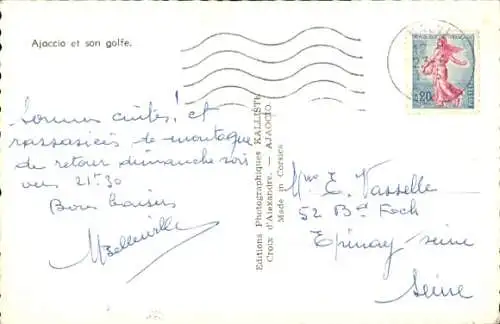 Ajaccio et son golfe.
Sommes cuites! et
rassasiées de montagne
de retour dimanche soir
vers 21h30
Bons baisers
Editions Photographiques KALLISTE
Croix d'Alexandre. - AJACCIO.
Made in Corsica
REPUBLIQUE FRANÇAISE
0,20
POSTES
Mme E. Vasselle
52 Bd Foch
Epinay seine
Seine